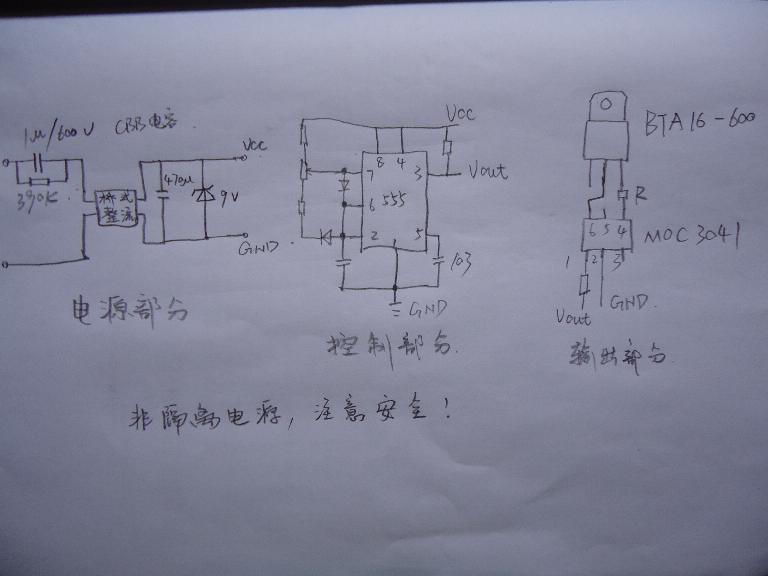 1μ/600V CBB电容
390K
桥式
整流
470μ
9V
Vcc
GND
电源部分
Vcc
Vout
7 8 4 3
6 555
2 1 5
103
GND
控制部分
BTA16-600
R
6 5 4
MOC3041
1 2 3
Vout
GND
输出部分
非隔离电源，注意安全！